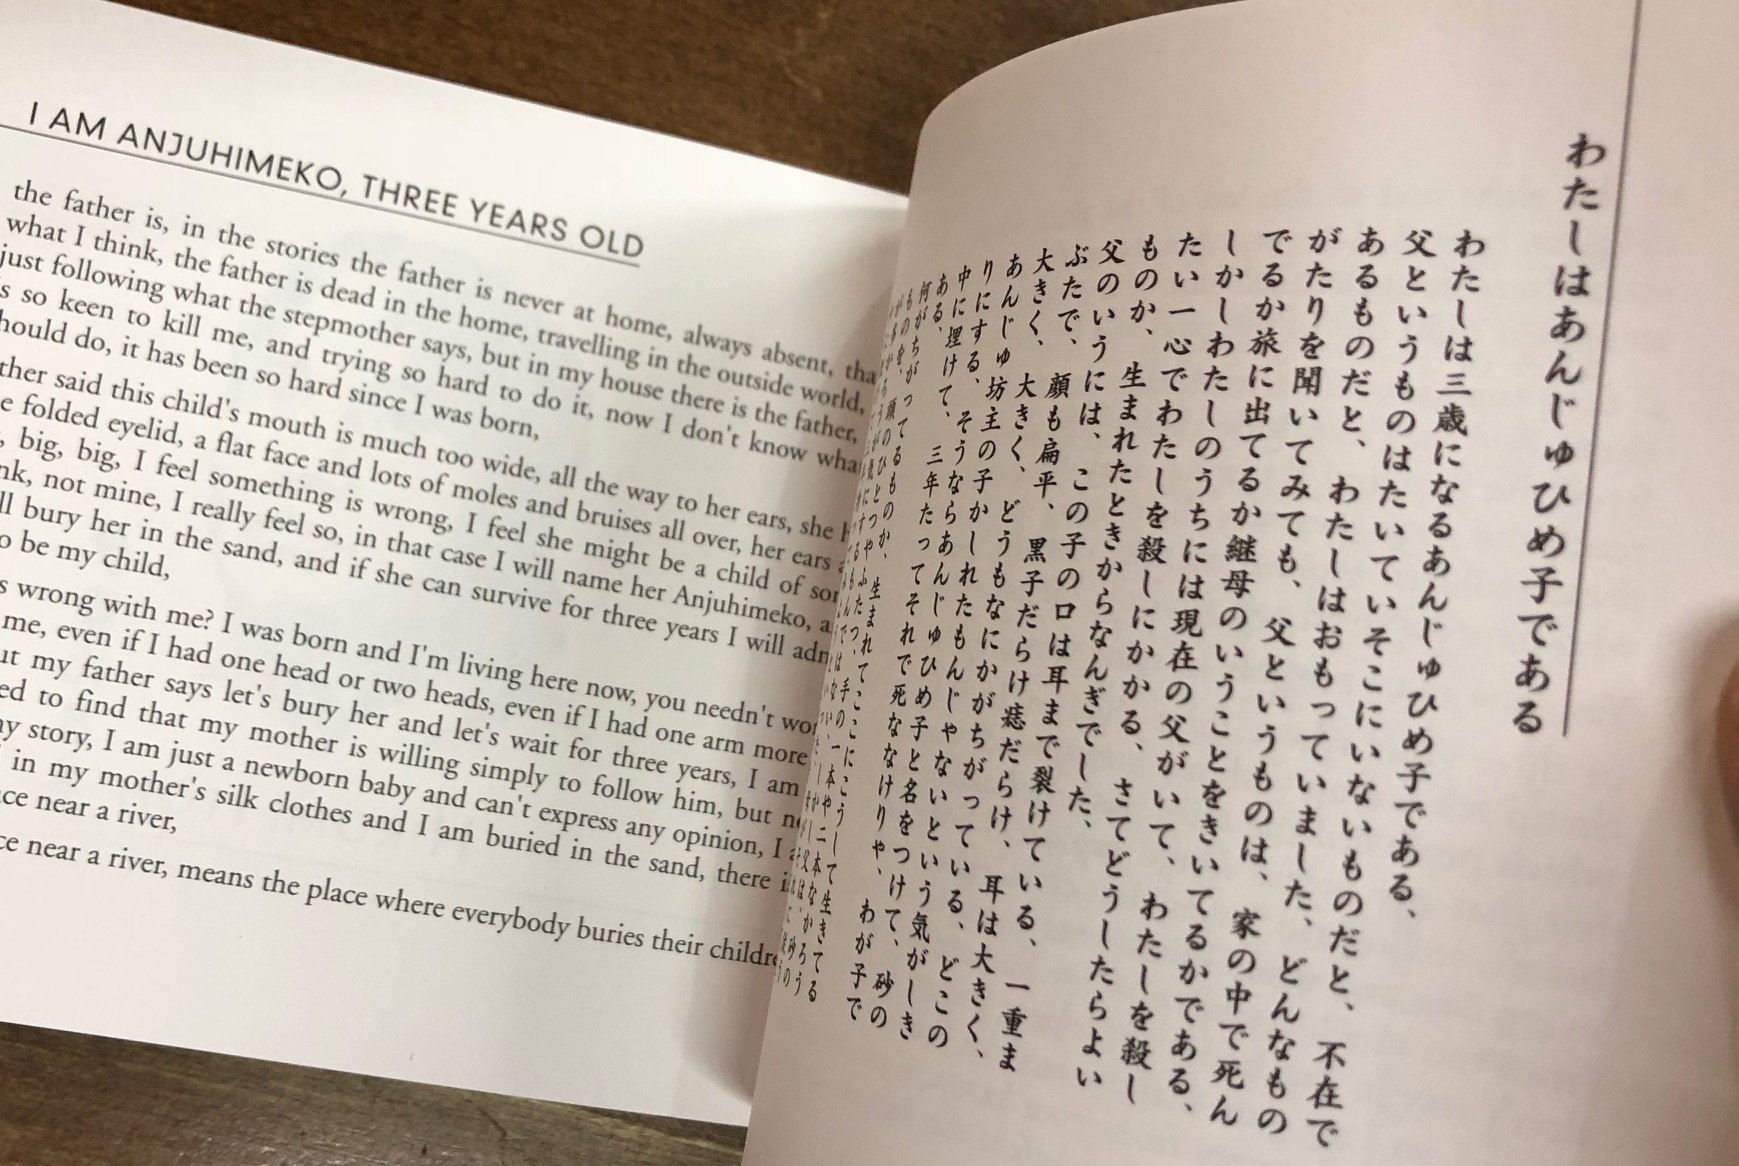 I AM ANJUHIMEKO, THREE YEARS OLD
the father is, in the stories the father is never at home, always absent,
what I think, the father is dead in the home, travelling in the outside world,
just following what the stepmother says, but in my house there is the father,
so keen to kill me, and trying so hard to do it, now I don't know
do, it has been so hard since I was born,
said this child's mouth is much too wide, all the way to her ears, she
folded eyelid, a flat face and lots of moles and bruises all over, her ears
big, big, I feel something is wrong, I feel she might be a child of
not mine, I really feel so, in that case I will name her Anjuhimeko,
bury her in the sand, and if she can survive for three years I will
be my child,
wrong with me? I was born and I'm living here now, you needn't
me, even if I had one head or two heads, even if I had one arm more
my father says let's bury her and let's wait for three years, I am
to find that my mother is willing simply to follow him, but
story, I am just a newborn baby and can't express any opinion, I
in my mother's silk clothes and I am buried in the sand, there
near a river,
near a river, means the place where everybody buries their
わたしはあんじゅひめ子である
わたしは三歳になるあんじゅひめ子である、
父というものはたいていそこにいないものだと、不在で
あるものだと、わたしはおもっていました、どんなもの
がたりを聞いてみても、父というものは、家の中で死ん
でるか旅に出てるか継母のいうことをきいてるかである、
しかしわたしのうちには現在の父がいて、わたしを殺し
たい一心でわたしを殺しにかかる、さてどうしたらよい
ものか、生まれたときからなんぎでした、
父のいうには、この子の口は耳まで裂けている、一重ま
ぶたで、顔も扁平、黒子だらけ痣だらけ、耳は大きく、
大きく、大きく、どうもなにかがちがっている、どこの
あんじゅ坊主の子かしれたもんじゃないという気がしき
りにする、そうならあんじゅひめ子と名をつけて、砂の
中に埋けて、三年たってそれで死ななけりゃ、わが子で
ある、
何がちがってるものか、生まれてここにこうして生きてる
ものを、